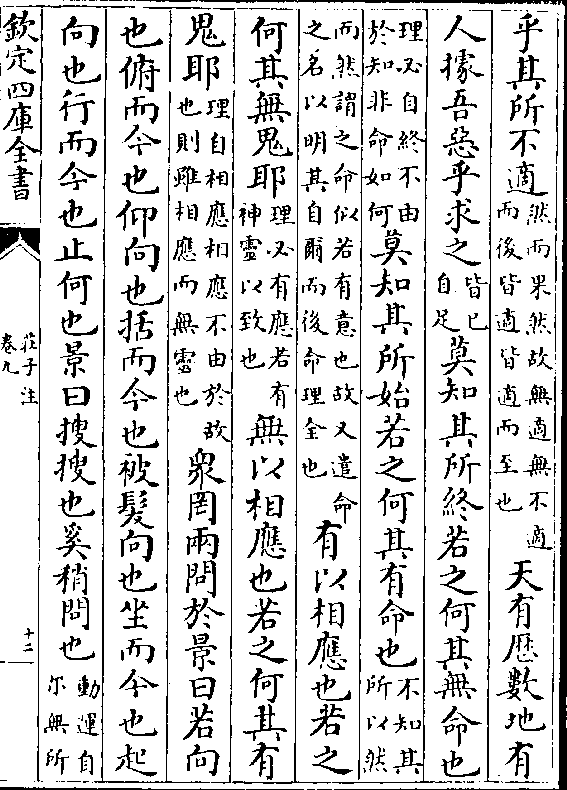 乎其所不適然而果然故無適無不適而後皆適皆適而至也天有厯數地有
人據吾惡乎求之皆已自足莫知其所終若之何其無命也
理必自終不由於知非命如何莫知其所始若之何其有命也不知其所以然
而然謂之命似若有意也故又遣命之名以明其自爾而後命理全也有以相應也若之
何其無鬼耶理必有應若有神靈以致也無以相應也若之何其有
鬼耶理自相應相應不由於故也則雖相應而無靈也衆罔兩問於景曰若向
也俯而今也仰向也括而今也被髮向也坐而今也起
向也行而今也止何也景曰搜搜也奚稍問也動運自尔無所
欽定四庫全書
莊子注
卷九
十二